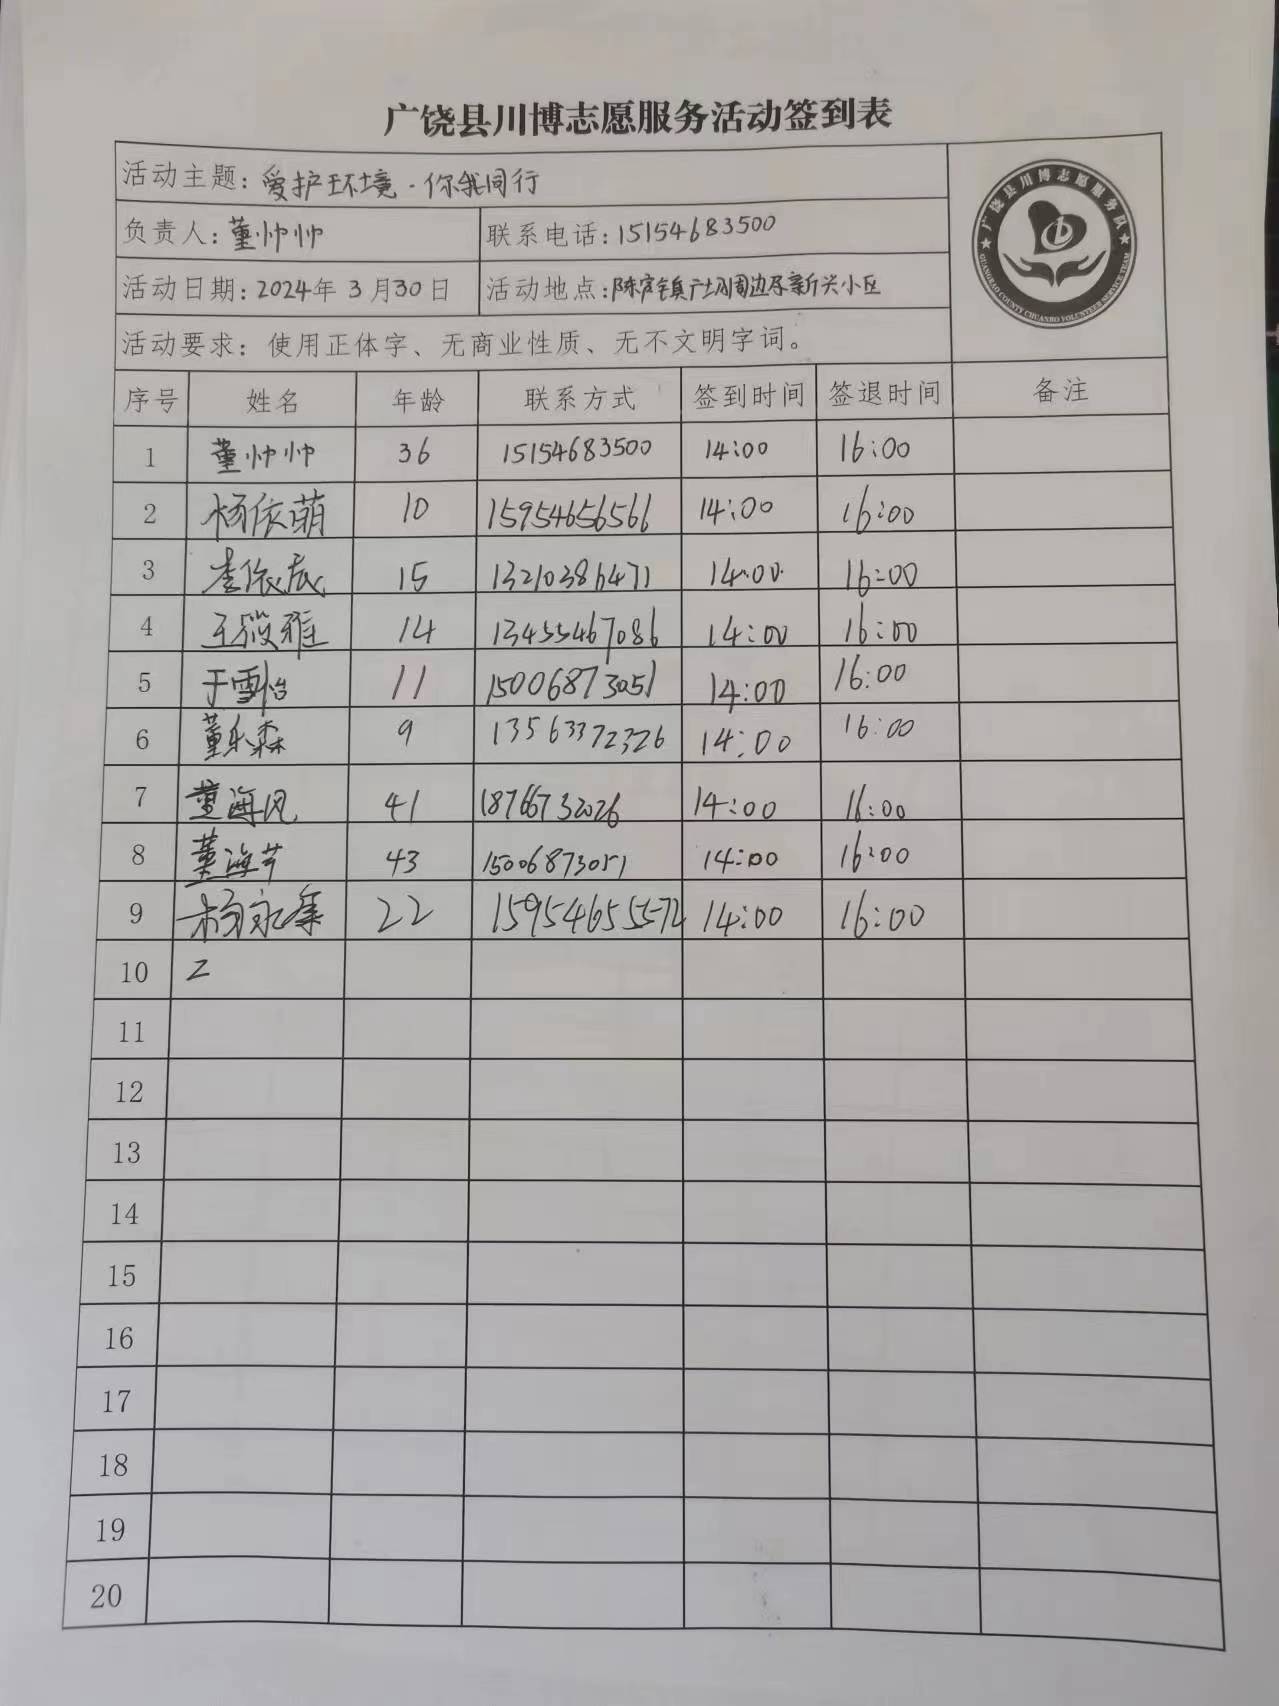 广饶县川博志愿服务活动签到表
活动主题：爱护环境·你我同行
负责人：董帅帅 联系电话：15154683500
活动日期：2024年3月30日 活动地点：陈官镇广场周边及新兴小区
广饶县川博志愿服务队
GUANGRAO COUNTY CHUANBO VOLUNTEER SERVICE TEAM
活动要求：使用正体字、无商业性质、无不文明字词。
序号 姓名 年龄 联系方式 签到时间 签退时间 备注
1 董帅帅 36 15154683500 14:00 16:00
2 杨依萌 10 15954656561 14:00 16:00
3 李依辰 15 13210386471 14:00 16:00
4 王筱雅 14 13455467086 14:00 16:00
5 于雪怡 11 15006873051 14:00 16:00
6 董乐森 9 13563372326 14:00 16:00
7 董海风 41 18766732026 14:00 16:00
8 董海芹 43 15006873051 14:00 16:00
9 杨永集 22 15954655572 14:00 16:00
10
11
12
13
14
15
16
17
18
19
20